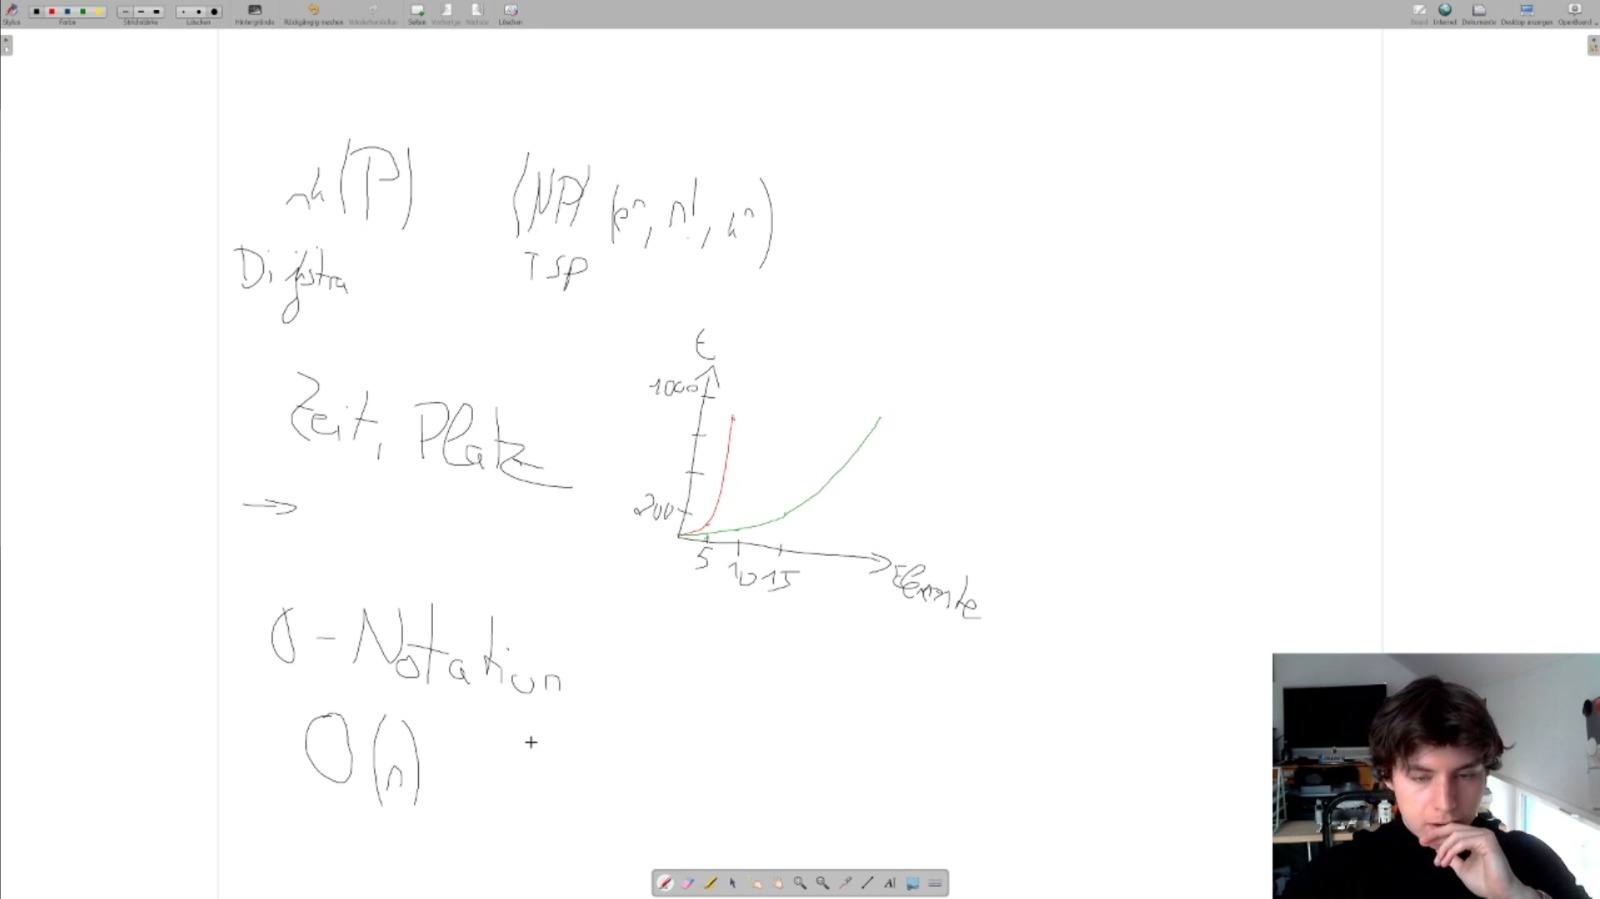 Stylus Farbe Strichstärke Löschen Hintergründe Rückgängig machen Wiederherstellen Seiten Vorherige Nächste Löschen Board Internet Dokumente Desktop anzeigen OpenBoard
n^k (P) (NP) (e^n, n!, k^n)
Dijkstra TSP
t
1000
Zeit, Platz
200
5 10 15
Elemente
O-Notation
O(n)